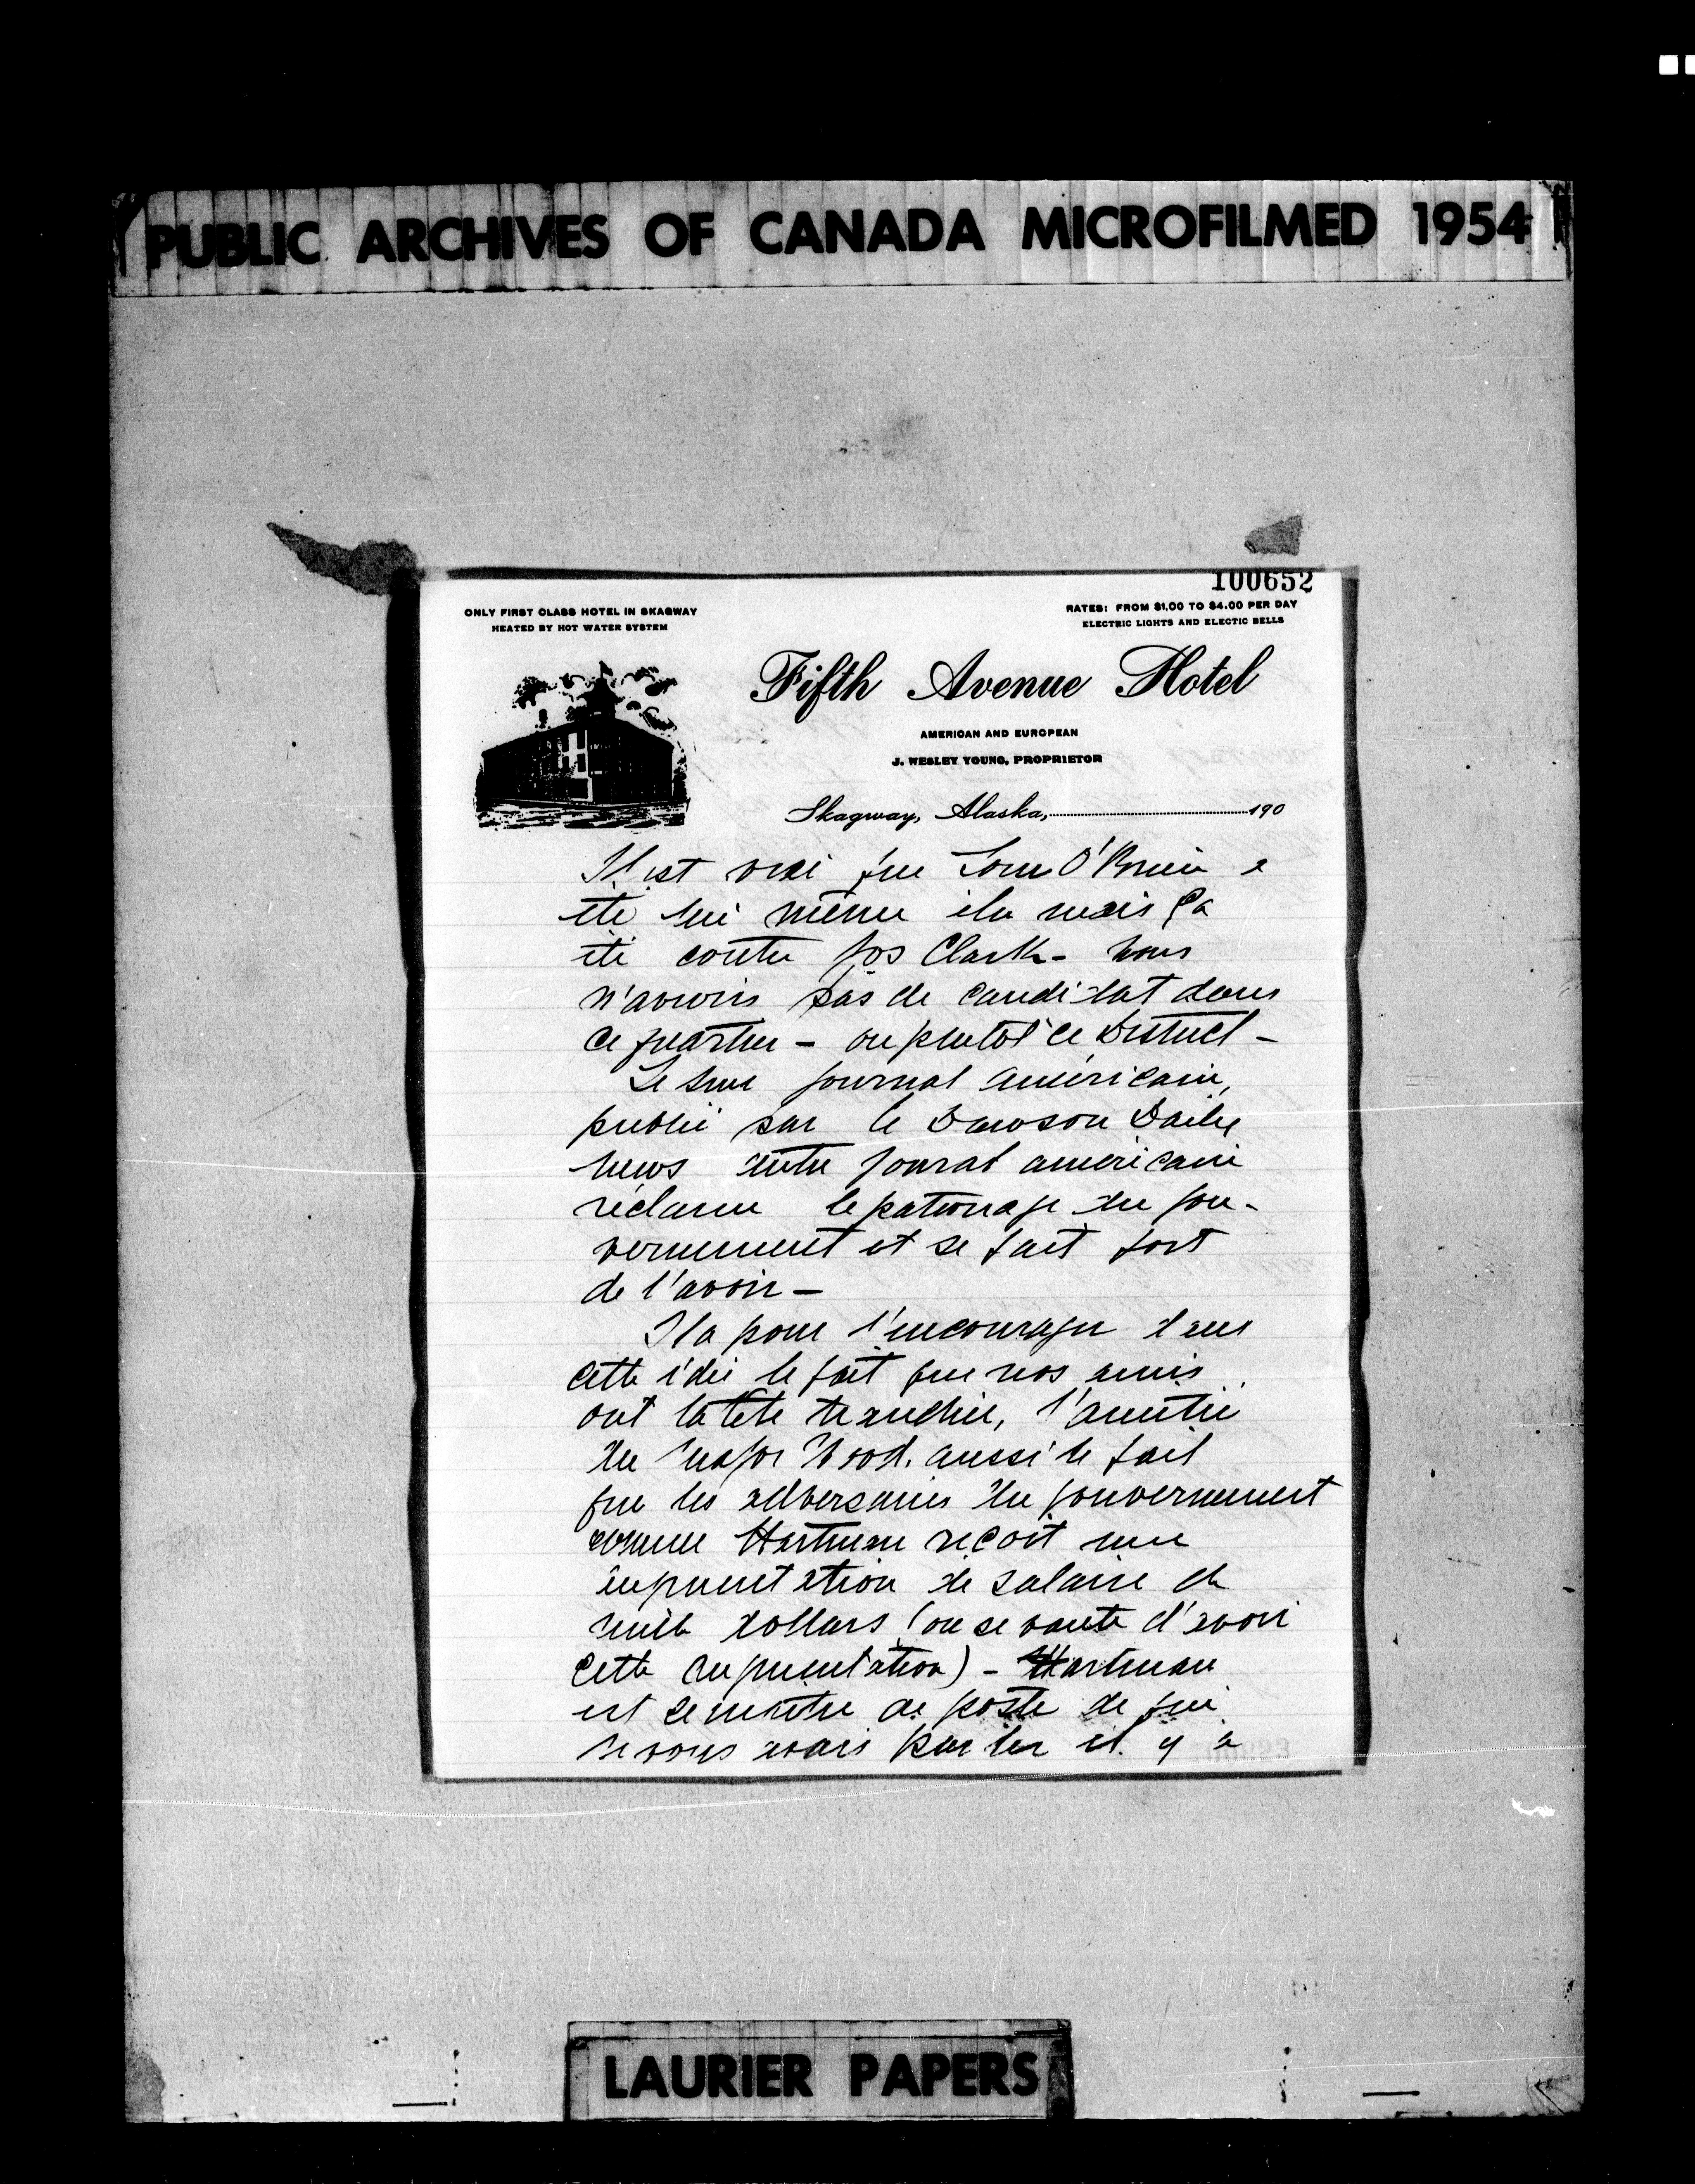 PUBLIC ARCHIVES OF CANADA MICROFILMED 1954
100652
ONLY FIRST CLASS HOTEL IN SKAGWAY
HEATED BY HOT WATER SYSTEM
RATES: FROM $1.00 TO $4.00 PER DAY
ELECTRIC LIGHTS AND ELECTIC BELLS
Fifth Avenue Hotel
AMERICAN AND EUROPEAN
J. WESLEY YOUNG, PROPRIETOR
Skagway, Alaska, 190
Il est vrai que Tom O'Brien a
été lui même élu mais ça
été contre Jos Clark - Nous
n'avions pas de candidat dans
ce quartier - ou plutôt ce District -
Le Sun journal américain,
publié par le Dawson Daily
News autre journal américain
réclame le patronage du gou-
vernement et se fait fort
de l'avoir -
Il a pour l'encourager dans
cette idée le fait que nos amis
ont la tête tranchée, l'amitié
du Major Wood. aussi le fait
que les adversaires du gouvernement
comme Hartman reçoit une
augmentation de salaire de
mille dollars (on se vante d'avoir
cette augmentation) - Hartman
est ce maître de poste de qui
je vous avais parler il y a
LAURIER PAPERS